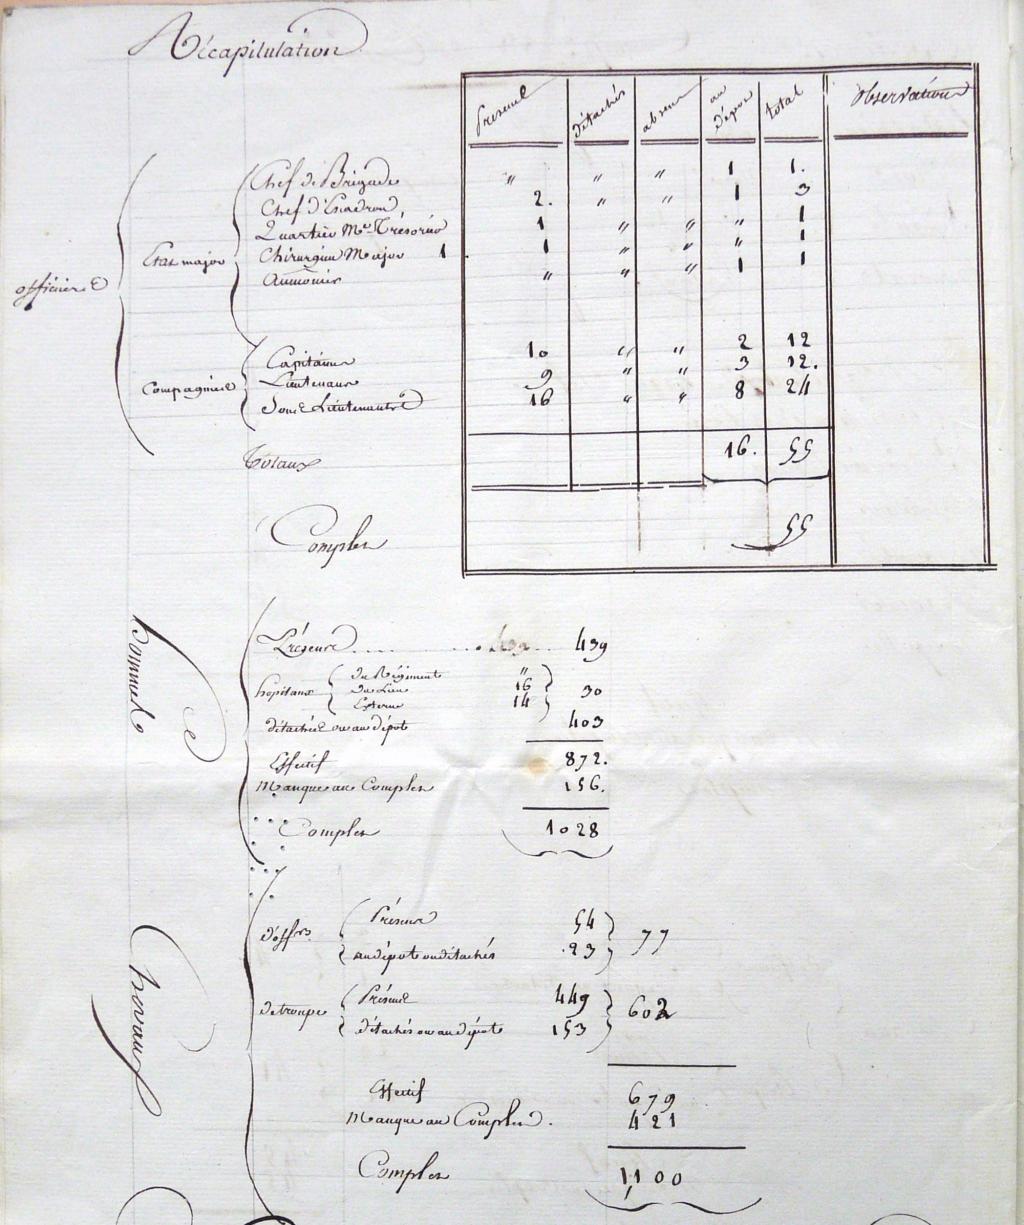 Récapitulation
Présens détachés absens au dépôt total Observations
officiers
Etat major
Chef de Brigade " " " 1 1.
Chef d'Escadron 2. " " 1 3
Quartier Me. Trésorier 1 " " " 1
Chirurgien Major 1 1 " " " 1
Aumonier " " " 1 1
Compagnies
Capitaines 10 " " 2 12
Lieutenans 9 " " 3 12.
Sous Lieutenants 16 " " 8 24
Totaux 16. 55
Complet 55
hommes
Présens 439 439
hopitaux
du Régiment "
du Lieu 16
Externe 14
30
détachés ou au dépôt 403
Effectif 872.
Manque au Complet 156.
Complet 1028
Chevaux
d'offrs.
Présens 54
au dépôt ou détachés 23
77
de troupe
Présens 449
détachés ou au dépôt 153
602
Effectif 679
Manque au Complet. 421
Complet 1100